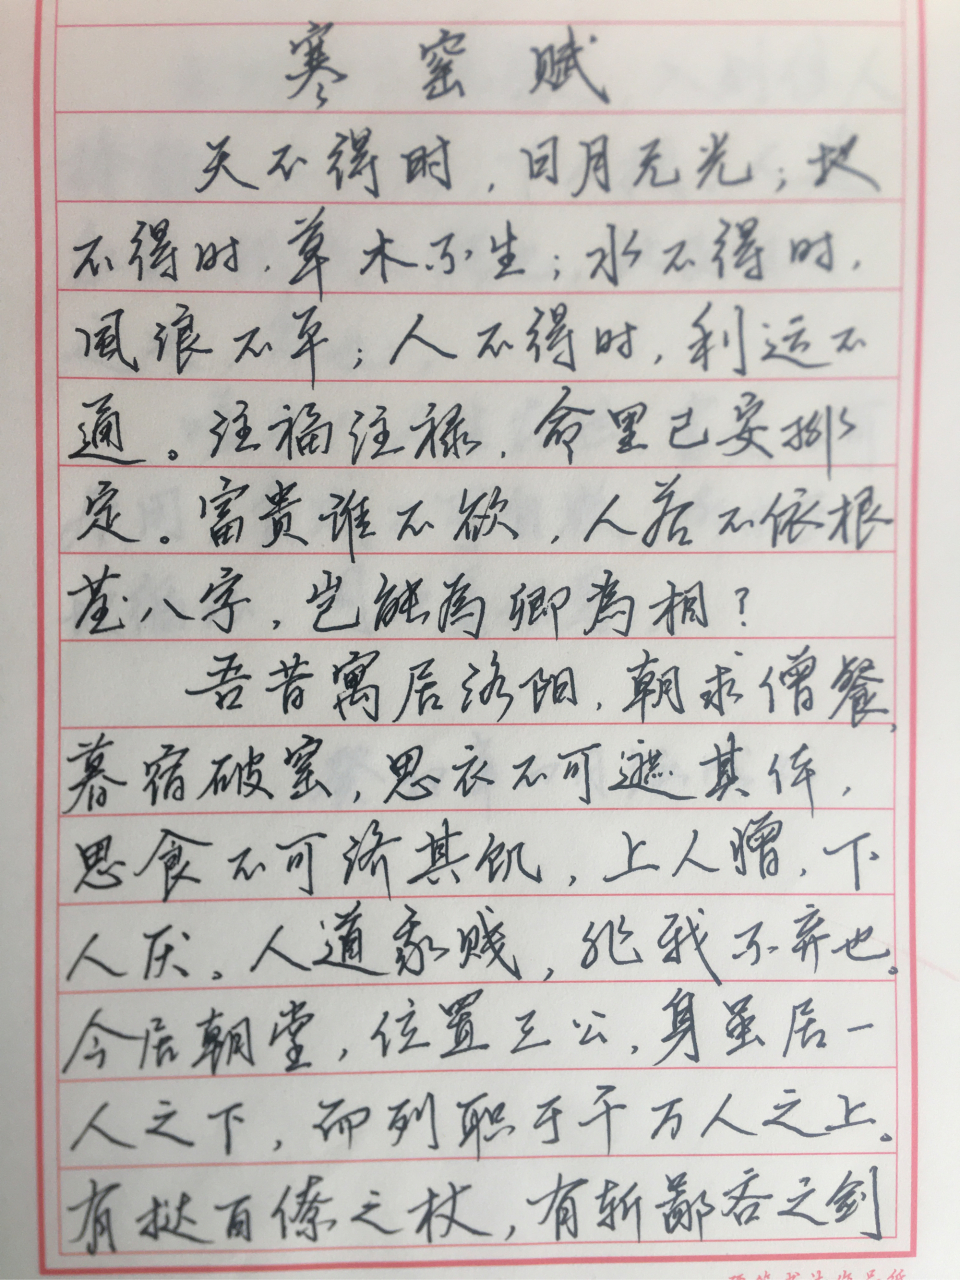 寒窑赋
天不得时，日月无光；地
不得时，草木不生；水不得时，
風浪不平；人不得时，利运不
通。注福注禄，命里已安排
定。富贵谁不欲，人若不依根
基八字，岂能為卿為相？
吾昔寓居洛阳，朝求僧餐，
暮宿破窑，思衣不可遮其体，
思食不可济其饥，上人憎，下
人厌。人道我贱，非我不弃也。
今居朝堂，位置三公，身虽居一
人之下，而列职于千万人之上。
有挞百僚之杖，有斩鄙吝之剑